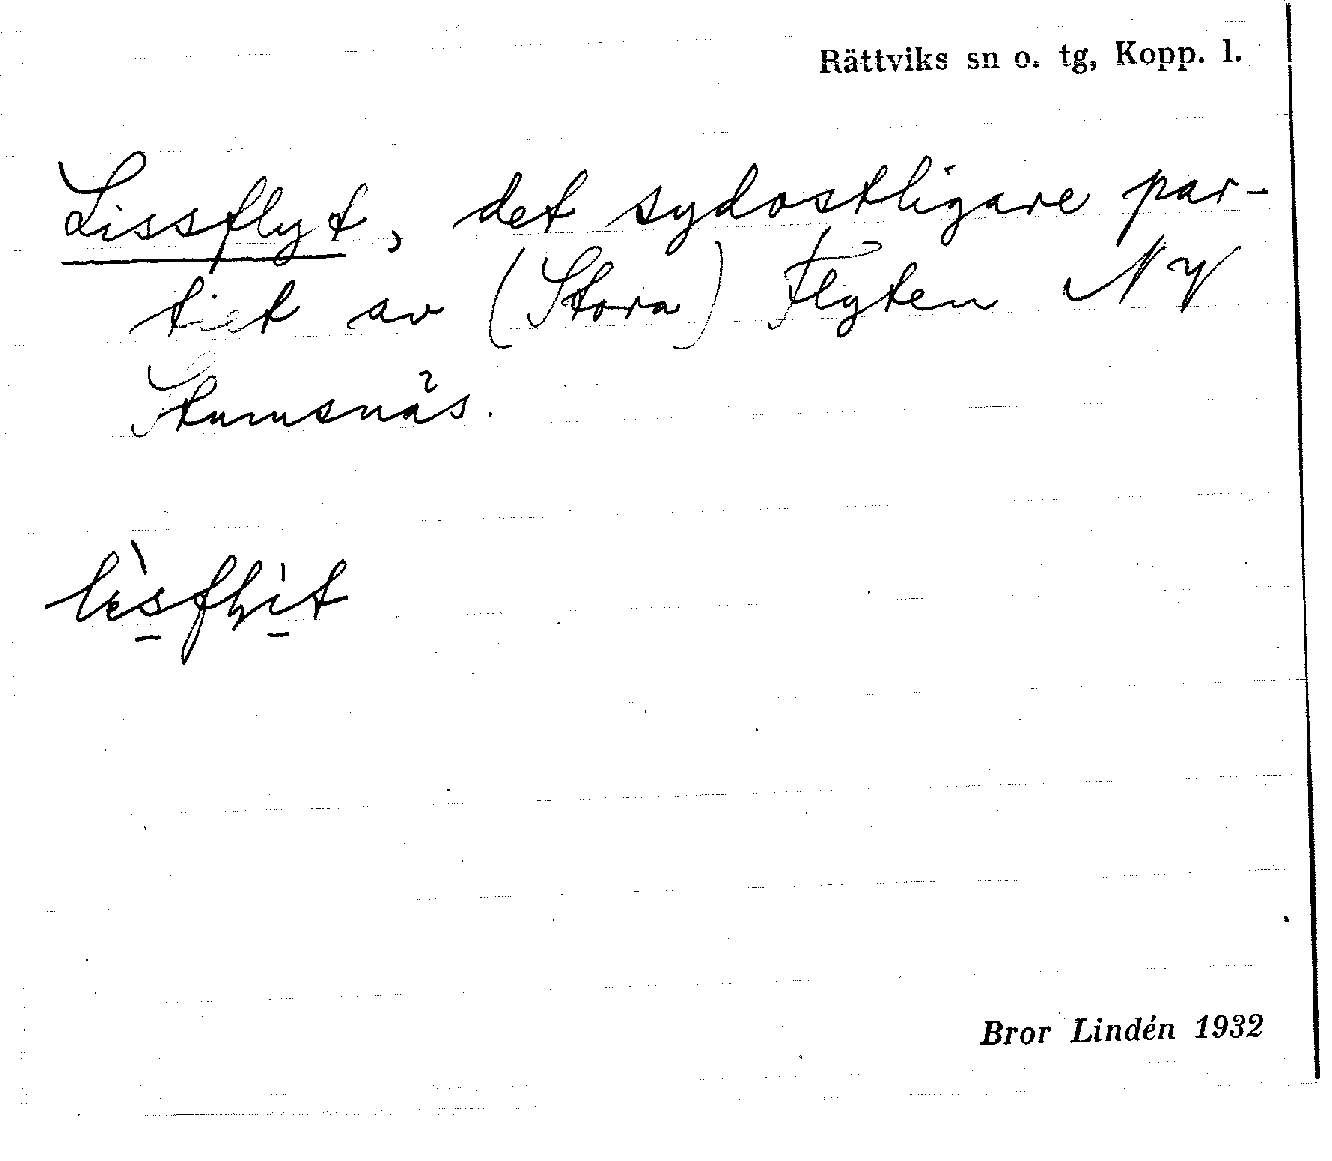 Rättviks sn o. tg, Kopp. l.
Lissflyt, det sydostligare par-
tiet av (Stora) Flyten NV
Stumsnäs.
Bror Lindén 1932